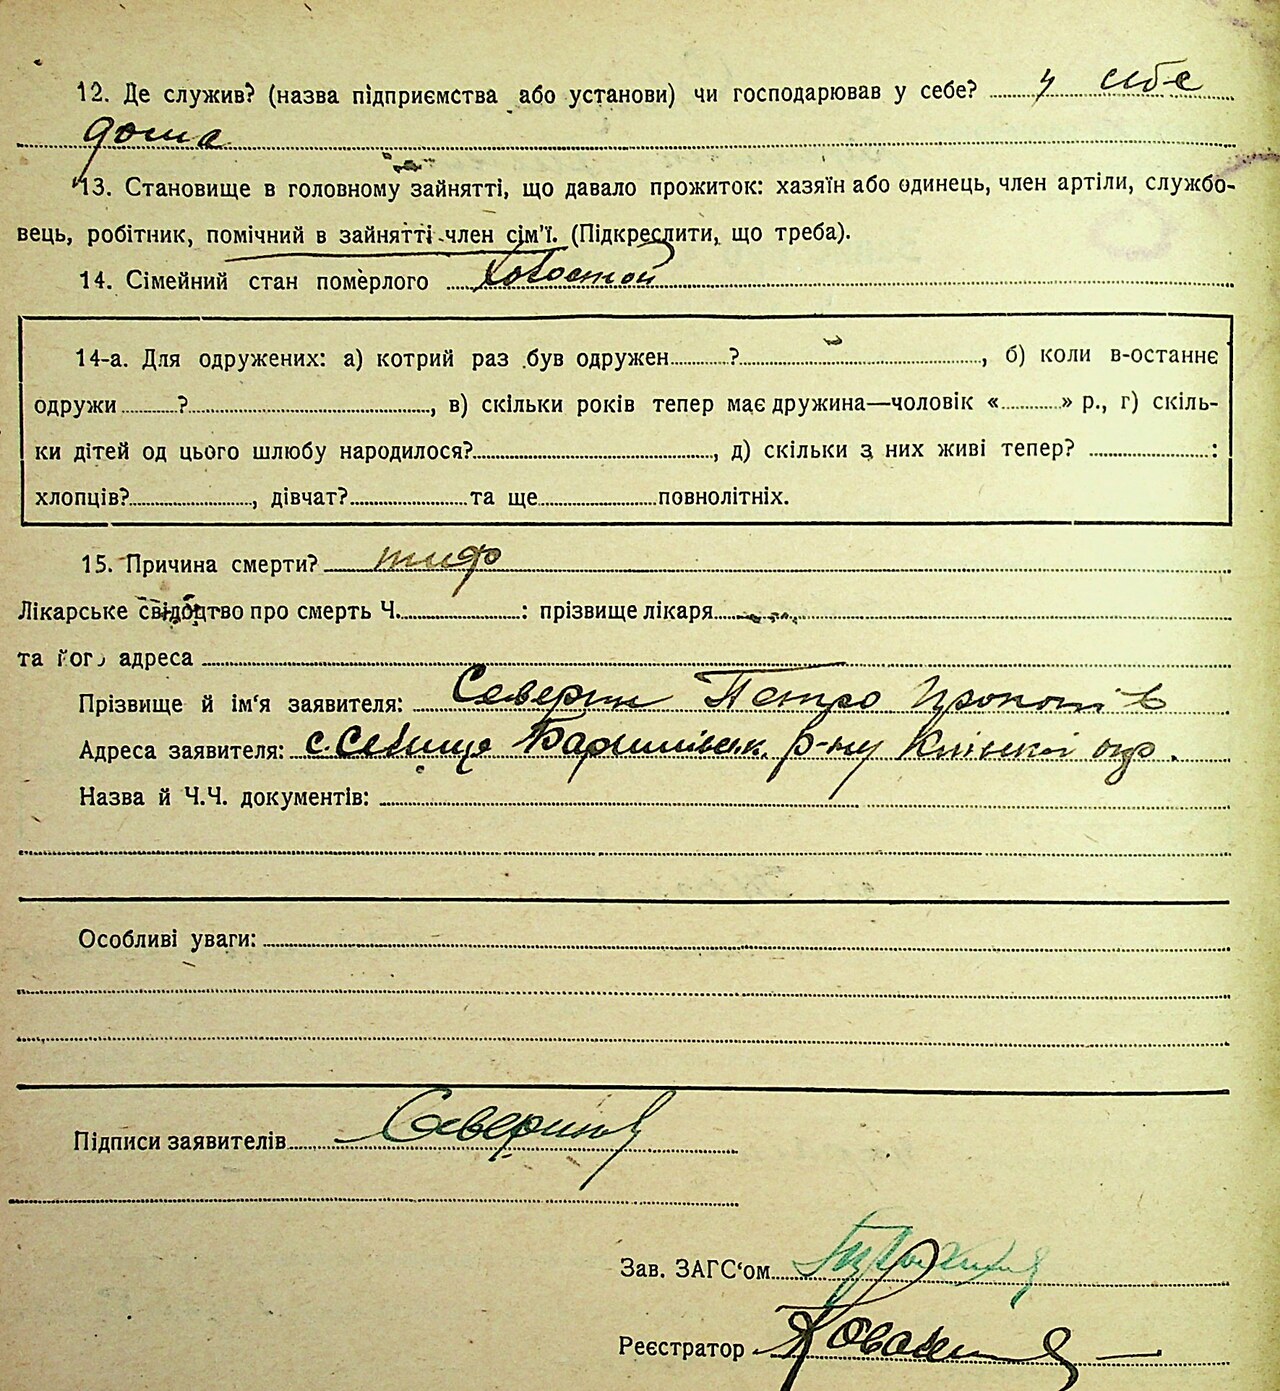 12. Де служив? (назва підприємства або установи) чи господарював у себе? у себе
дома
13. Становище в головному зайнятті, що давало прожиток: хазяїн або одинець, член артіли, службо-
вець, робітник, помічний в зайнятті член сім'ї. (Підкреслити, що треба).
14. Сімейний стан померлого Холостой
14-а. Для одружених: а) котрий раз був одружен.........?........................, б) коли в-останнє
одружи.........?........................, в) скільки років тепер має дружина—чоловік «.........» р., г) скіль-
ки дітей од цього шлюбу народилося?........................, д) скільки з них живі тепер? ...............:
хлопців?..............., дівчат?...............та ще...............повнолітніх.
15. Причина смерти? тиф
Лікарське свідоцтво про смерть Ч................: прізвище лікаря...............
та його адреса
Прізвище й ім'я заявителя: Северин Петро
Адреса заявителя: с. Селище Баришівськ. р-ну Київської окр.
Назва й Ч.Ч. документів:
Особливі уваги:
Підписи заявителів Северин
Зав. ЗАГС'ом
Реєстратор